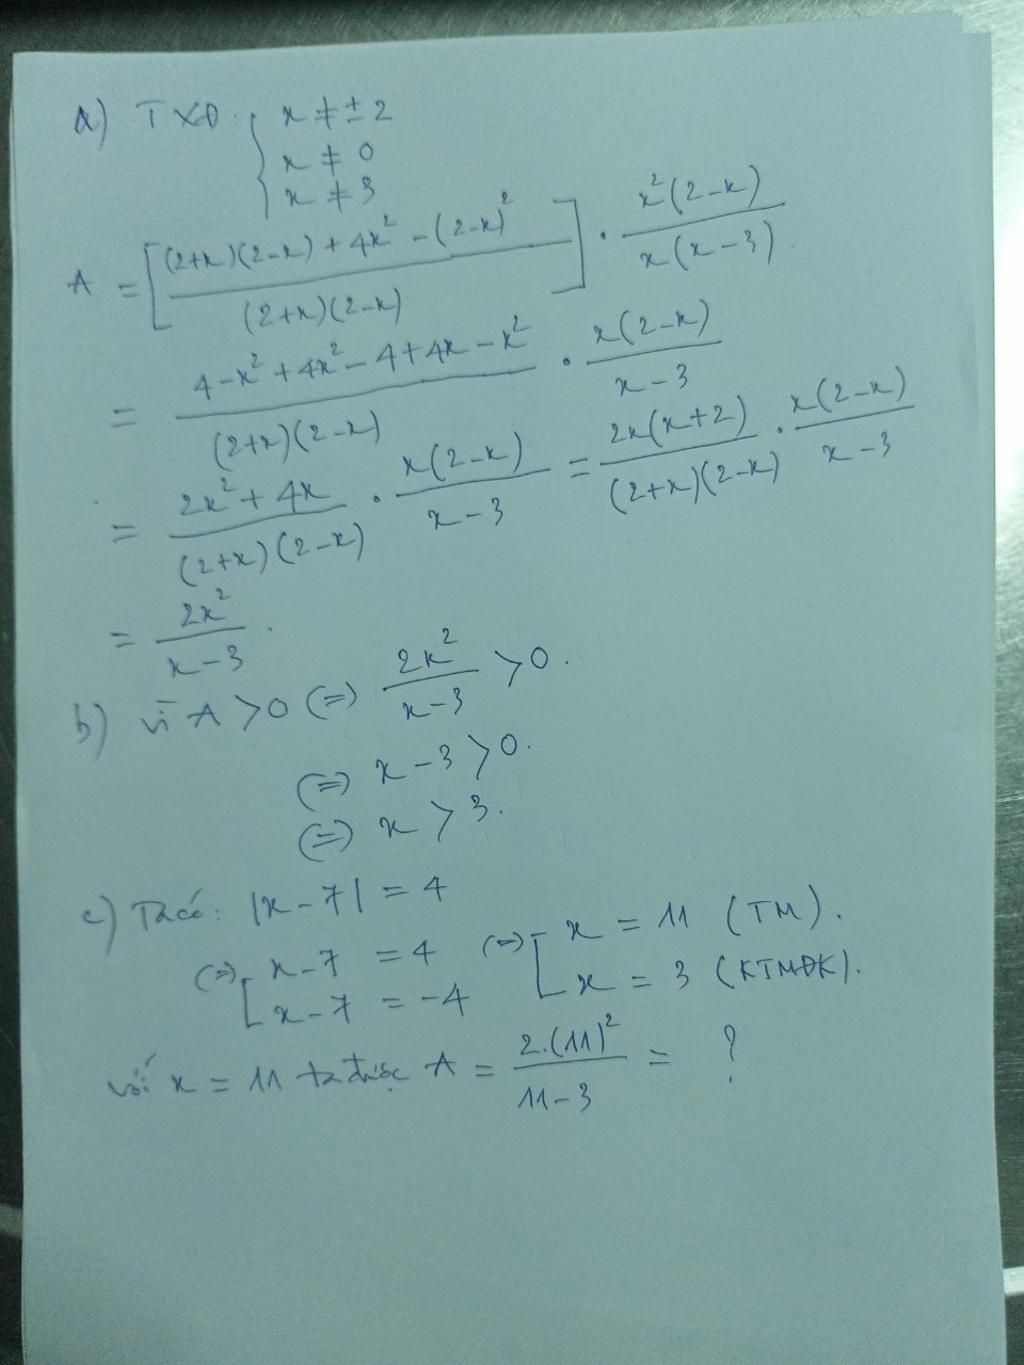 a) TXĐ: { x ≠ ± 2
x ≠ 0
x ≠ 3
A = [ ((2+x)(2-x) + 4x² - (2-x)²) / ((2+x)(2-x)) ] . (x²(2-x)) / (x(x-3))
= (4-x² + 4x² - 4 + 4x - x²) / ((2+x)(2-x)) . (x(2-x)) / (x-3)
= (2x² + 4x) / ((2+x)(2-x)) . (x(2-x)) / (x-3) = (2x(x+2)) / ((2+x)(2-x)) . (x(2-x)) / (x-3)
= 2x² / (x-3) .
b) vì A > 0 (=) 2x² / (x-3) > 0.
(=) x - 3 > 0.
(=) x > 3.
c) Ta có: |x - 7| = 4
(=) [ x - 7 = 4 (=) [ x = 11 (TM).
x - 7 = -4 x = 3 (KTMĐK).
với x = 11 ta được A = 2.(11)² / (11-3) = ?